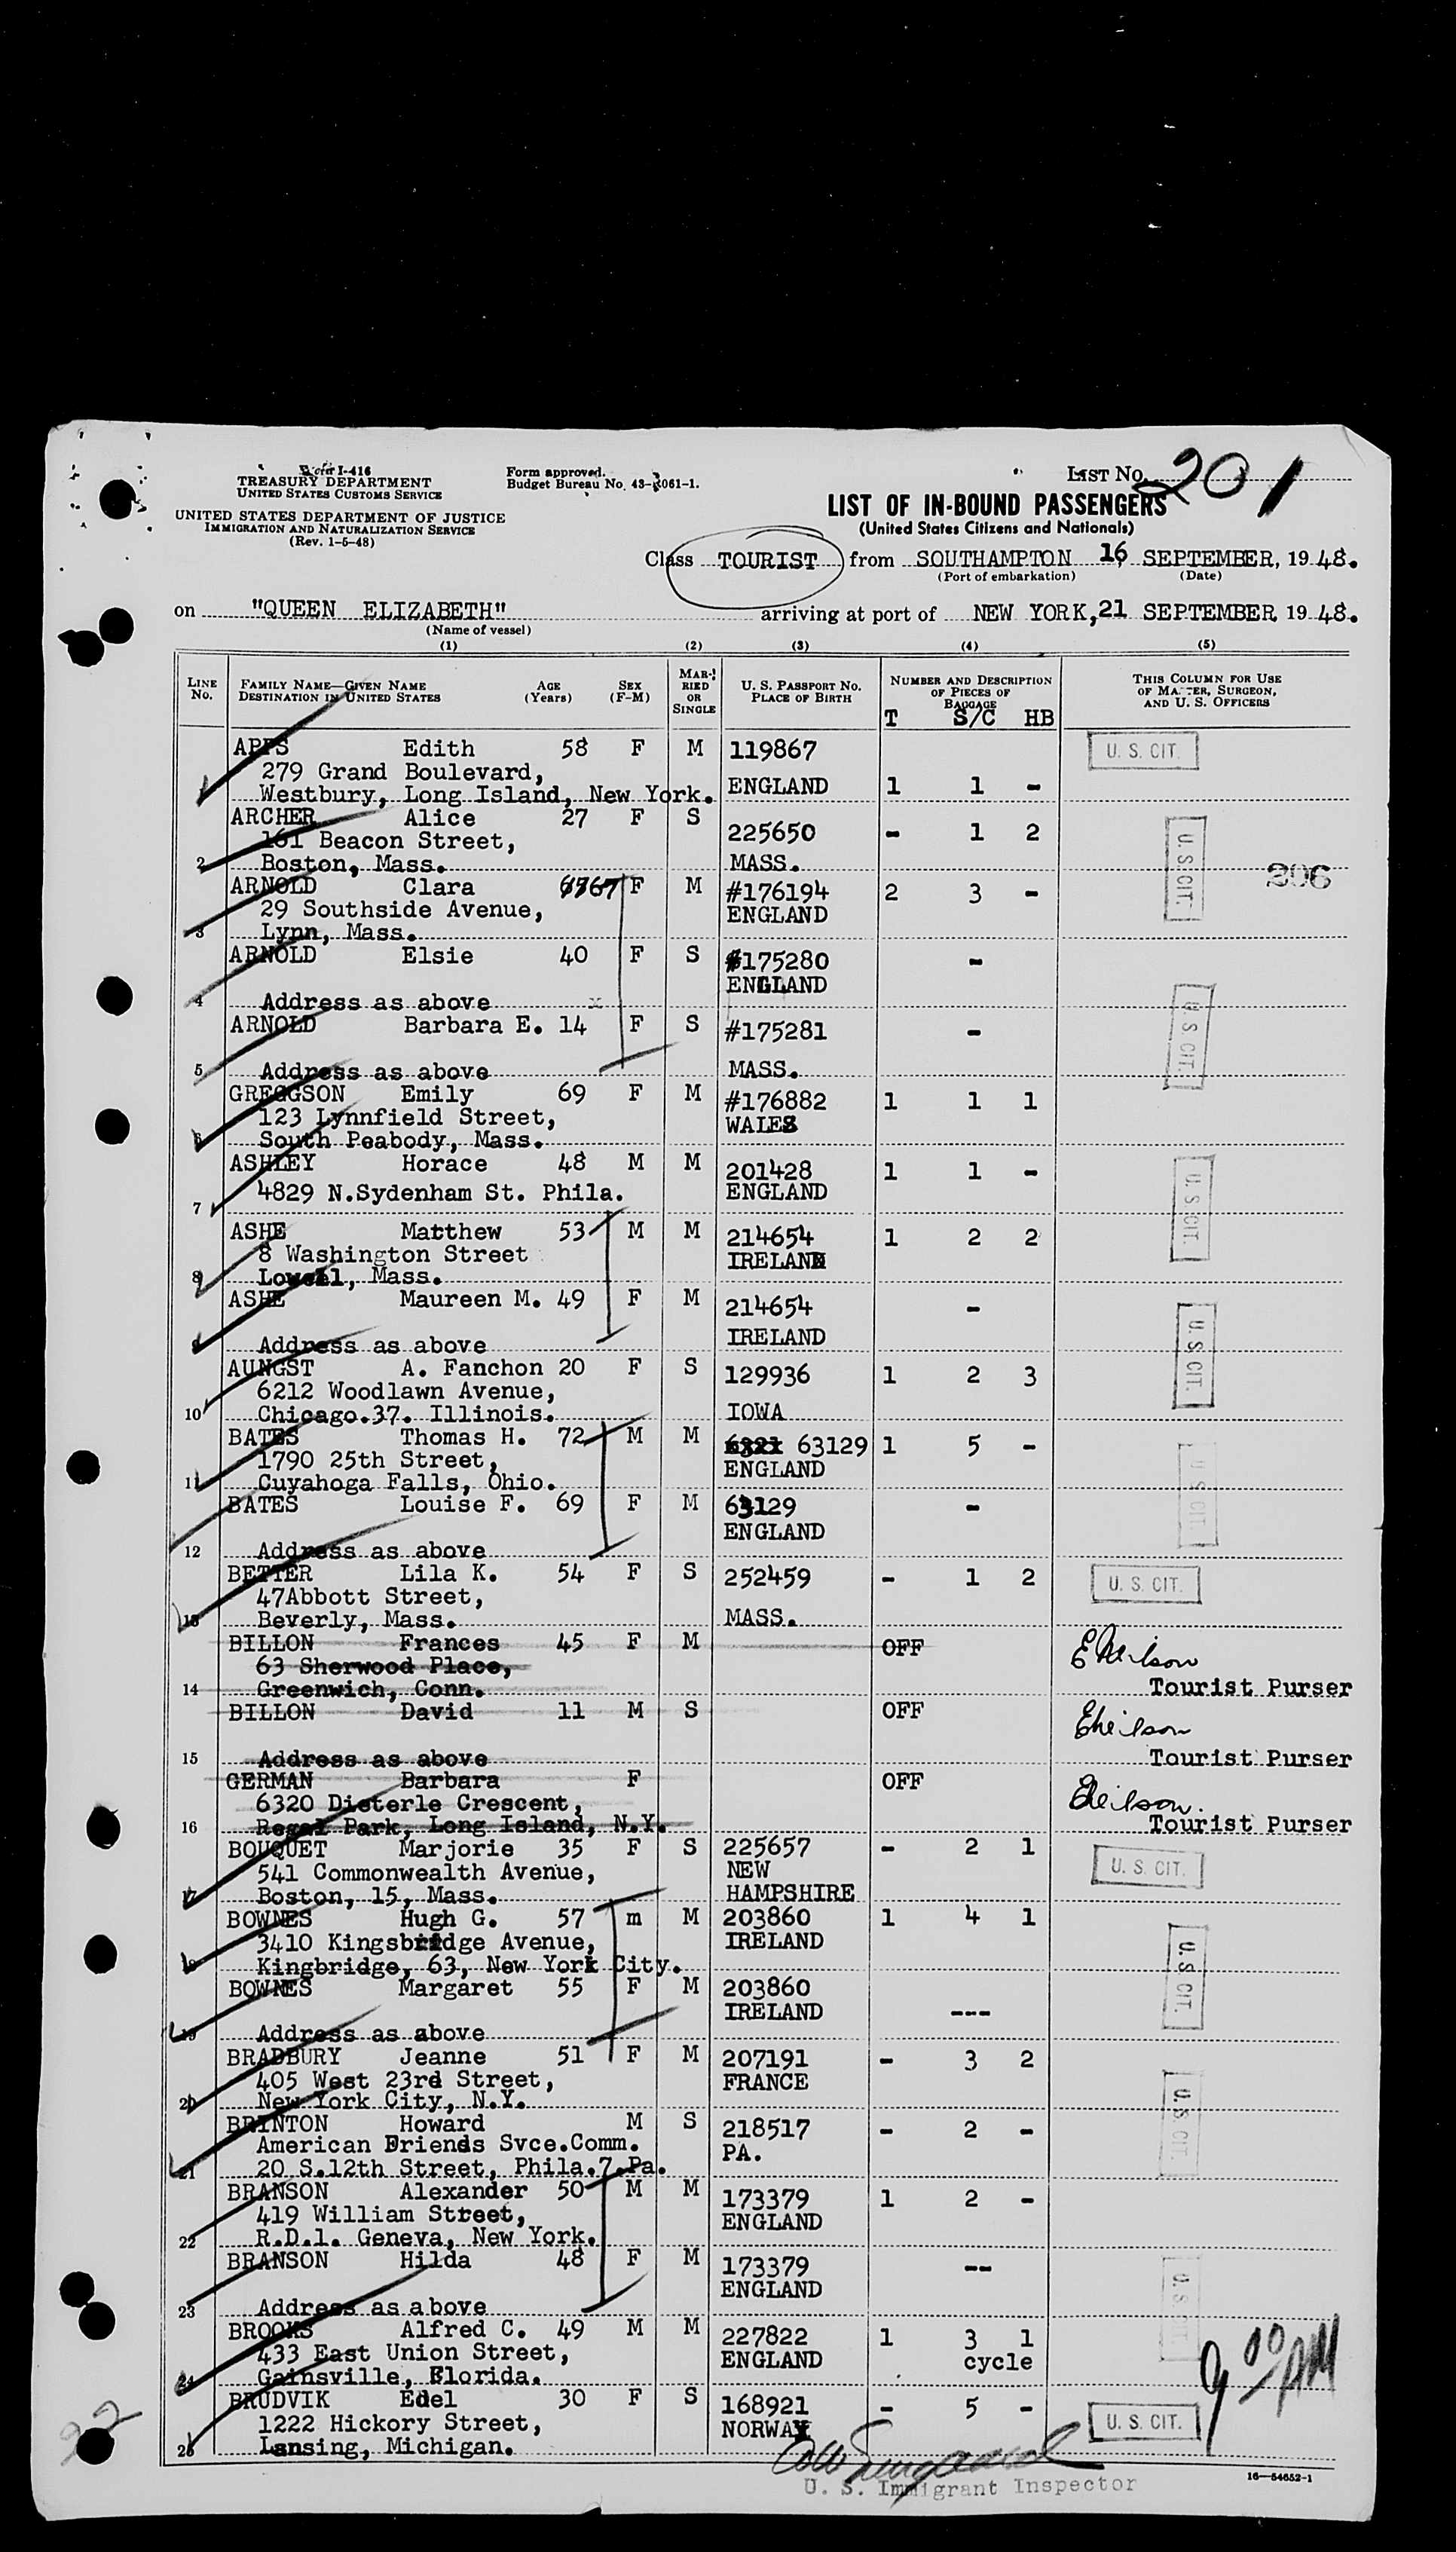 Form I-416
TREASURY DEPARTMENT
UNITED STATES CUSTOMS SERVICE
UNITED STATES DEPARTMENT OF JUSTICE
IMMIGRATION AND NATURALIZATION SERVICE
(Rev. 1-5-48)
Form approved.
Budget Bureau No. 43-R061-1.
LIST NO. 201
LIST OF IN-BOUND PASSENGERS
(United States Citizens and Nationals)
Class TOURIST from SOUTHAMPTON 16 SEPTEMBER, 1948.
(Port of embarkation) (Date)
on "QUEEN ELIZABETH" arriving at port of NEW YORK, 21 SEPTEMBER 1948.
(Name of vessel)
(1) (2) (3) (4) (5)
LINE No. FAMILY NAME—GIVEN NAME DESTINATION IN UNITED STATES AGE (Years) SEX (F-M) MARRIED OR SINGLE U. S. PASSPORT NO. PLACE OF BIRTH NUMBER AND DESCRIPTION OF PIECES OF BAGGAGE THIS COLUMN FOR USE OF MASTER, SURGEON, AND U. S. OFFICERS
T S/C HB
APPS Edith 58 F M 119867 U. S. CIT.
279 Grand Boulevard,
Westbury, Long Island, New York. ENGLAND 1 1 -
ARCHER Alice 27 F S 225650 - 1 2 U. S. CIT.
161 Beacon Street,
2 Boston, Mass. MASS.
ARNOLD Clara 67 F M #176194 2 3 - 206
29 Southside Avenue, ENGLAND
3 Lynn, Mass.
ARNOLD Elsie 40 F S #175280 -
ENGLAND
4 Address as above
ARNOLD Barbara E. 14 F S #175281 - U. S. CIT.
5 Address as above MASS.
GREGGSON Emily 69 F M #176882 1 1 1
123 Lynnfield Street, WALES
6 South Peabody, Mass.
ASHLEY Horace 48 M M 201428 1 1 - U. S. CIT.
7 4829 N.Sydenham St. Phila. ENGLAND
ASHE Matthew 53 M M 214654 1 2 2
8 Washington Street IRELAND
8 Lowell, Mass.
ASHE Maureen M. 49 F M 214654 - U. S. CIT.
9 Address as above IRELAND
AUNGST A. Fanchon 20 F S 129936 1 2 3
6212 Woodlawn Avenue,
10 Chicago.37. Illinois. IOWA
BATES Thomas H. 72 M M 63129 1 5 - U. S. CIT.
1790 25th Street, ENGLAND
11 Cuyahoga Falls, Ohio.
BATES Louise F. 69 F M 63129 -
ENGLAND
12 Address as above
BETTER Lila K. 54 F S 252459 - 1 2 U. S. CIT.
47Abbott Street,
13 Beverly, Mass. MASS.
BILLON Frances 45 F M OFF ENeilson
63 Sherwood Place,
14 Greenwich, Conn. Tourist Purser
BILLON David 11 M S OFF ENeilson
15 Address as above Tourist Purser
GERMAN Barbara F OFF ENeilson.
6320 Dieterle Crescent,
16 Regal Park, Long Island, N.Y. Tourist Purser
BOUQUET Marjorie 35 F S 225657 - 2 1 U. S. CIT.
541 Commonwealth Avenue, NEW
17 Boston, 15, Mass. HAMPSHIRE
BOWNES Hugh G. 57 m M 203860 1 4 1
3410 Kingsbridge Avenue, IRELAND
18 Kingbridge, 63, New York City. U. S. CIT.
BOWNES Margaret 55 F M 203860
IRELAND ---
19 Address as above
BRADBURY Jeanne 51 F M 207191 - 3 2
405 West 23rd Street, FRANCE
20 New York City, N.Y. U. S. CIT.
BRINTON Howard M S 218517 - 2 -
American Friends Svce.Comm. PA.
21 20 S.12th Street, Phila.7.Pa.
BRANSON Alexander 50 M M 173379 1 2 -
419 William Street, ENGLAND
22 R.D.1. Geneva, New York.
BRANSON Hilda 48 F M 173379 -- U. S. CIT.
ENGLAND
23 Address as above
BROOKS Alfred C. 49 M M 227822 1 3 1
433 East Union Street, ENGLAND cycle
24 Gainsville, Florida. 9 00 PM
BRUDVIK Edel 30 F S 168921 - 5 - U. S. CIT.
1222 Hickory Street, NORWAY
25 Lansing, Michigan.
22
U. S. Immigrant Inspector
16—54652-1